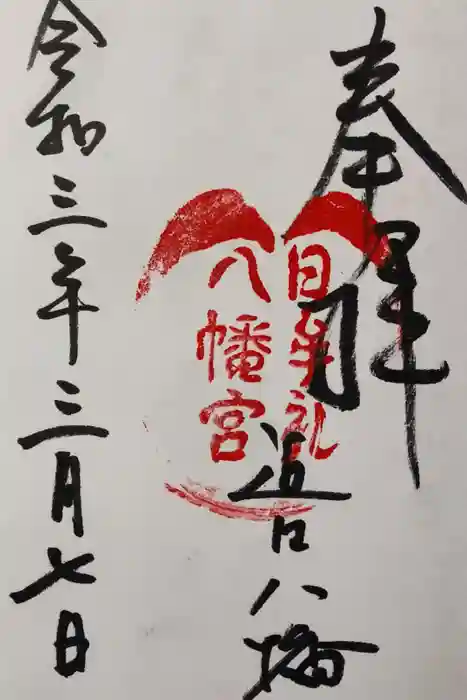 奉拝
日牟礼
八幡宮
八幡
令和三年三月七日